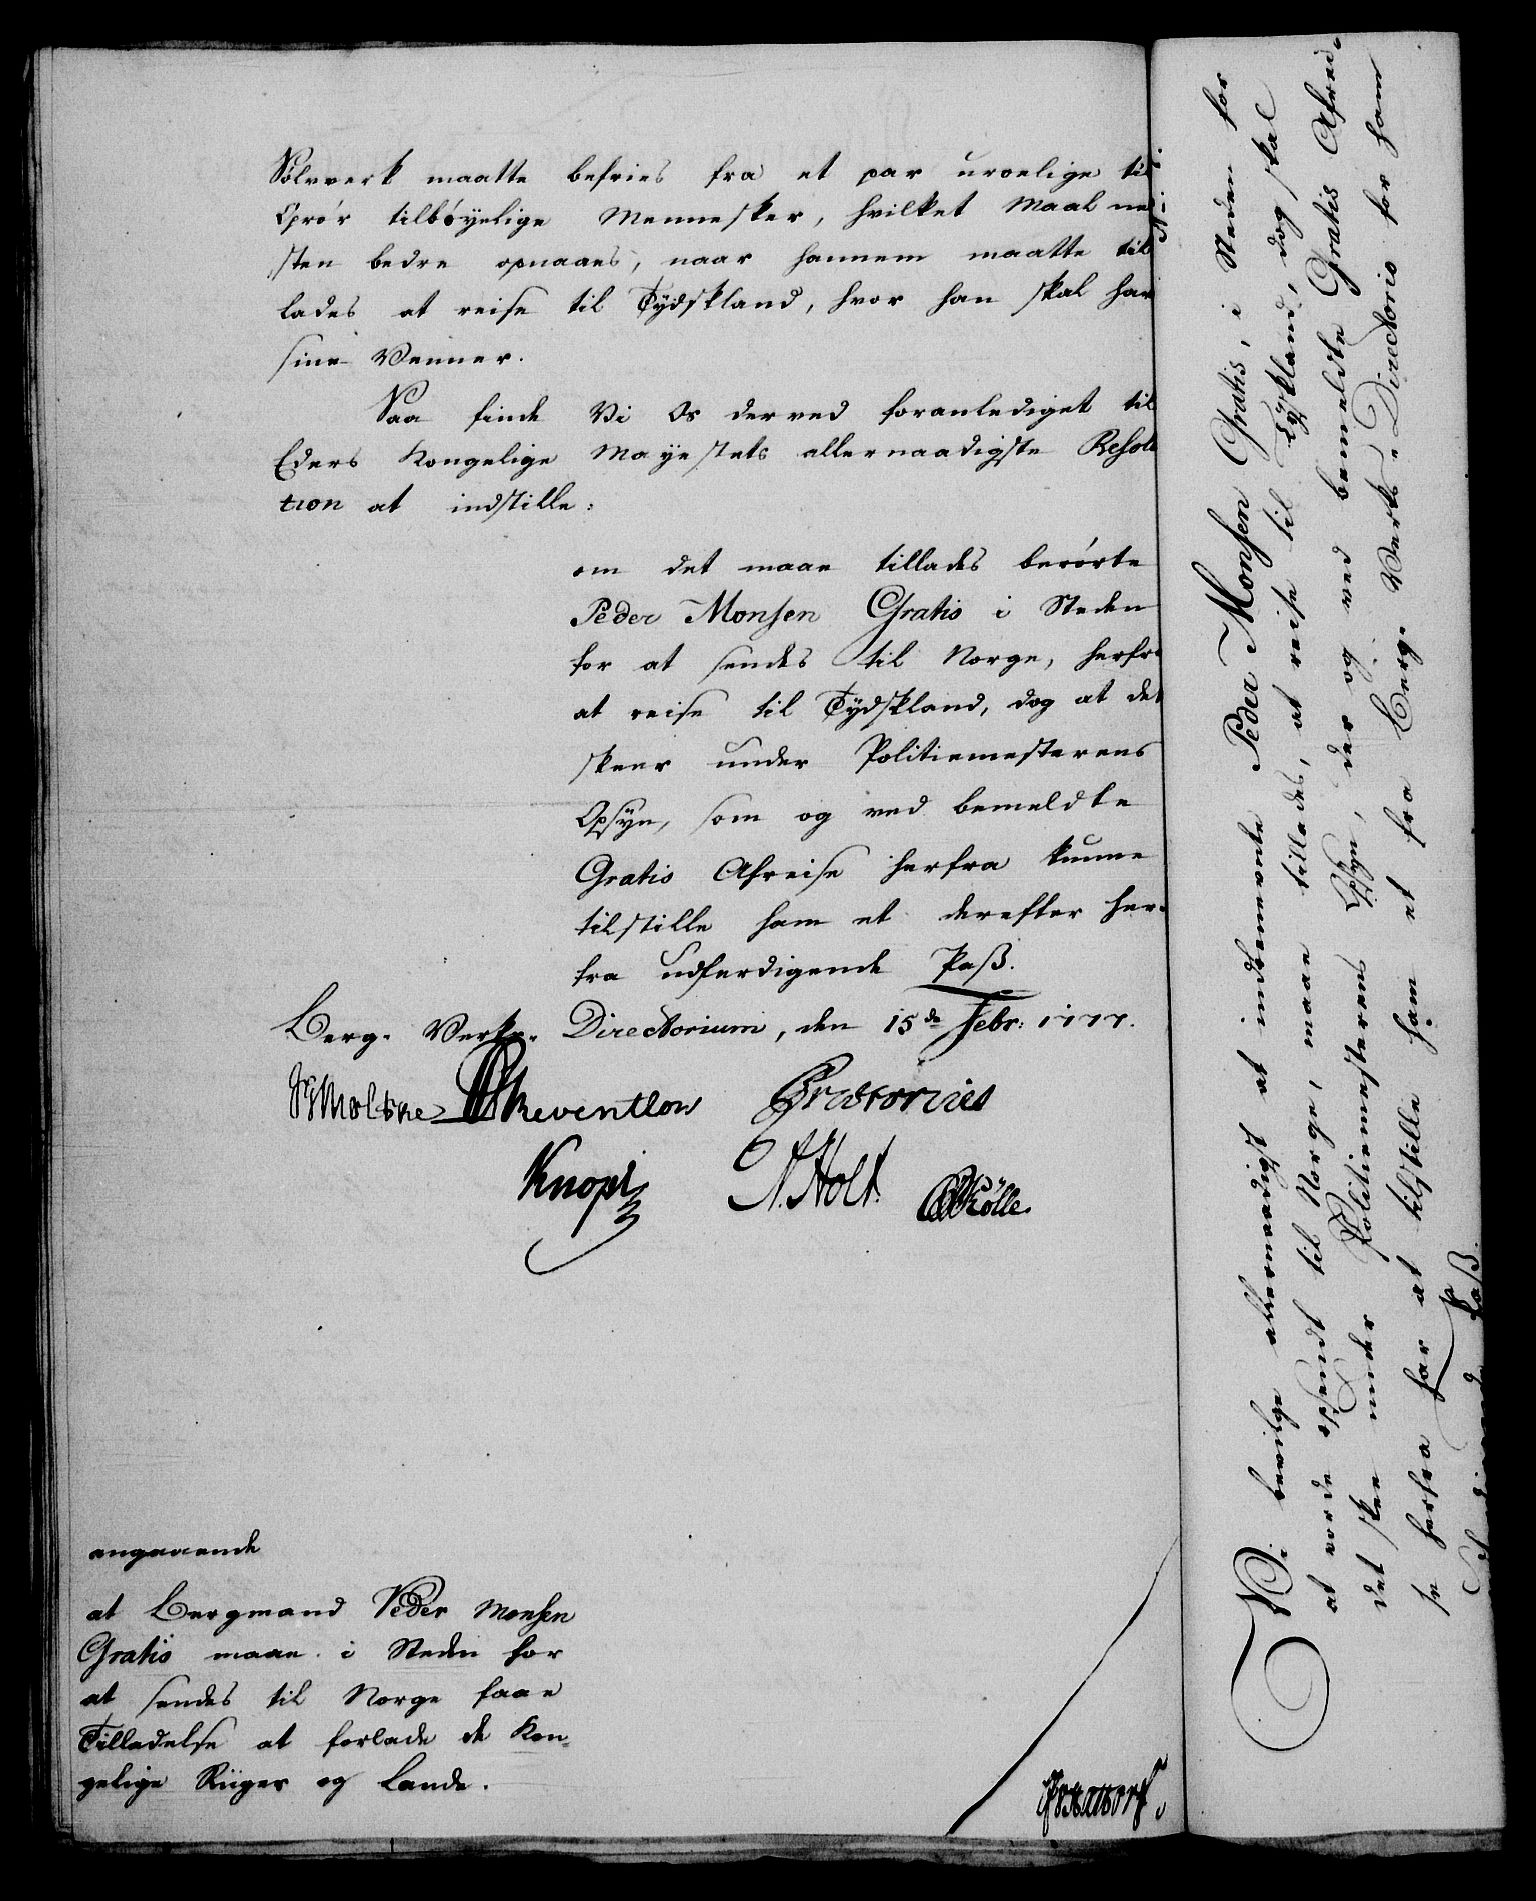 Sölvverk maatte befries fra et par uroelige til
Oprör tilböyelige Mennesker, hvilket Maal ne
sten bedre opnaaes, naar hannem maatte til
lades at reise til Tydskland, hvor han skal hav
sine Venner.
Saa finde Vi Os derved foranlediget til
Eders Kongelige Mayestets allernaadigste Resolu
tion at indstille:
om det maae tillades berörte
Peder Monsen Gratis i Steden
for at sendes til Norge, herfra
at reise til Tydskland, dog at det
skeer under Politiemesterens
Opsÿn, som og ved bemeldte
Gratis Afreise herfra kunne
tilstille ham et derefter her-
fra udferdigende Pass.
Berg-Verks-Directorium, den 15de Febr: 1777.
Moltke Reventlow Prætorius
Knopf N. Holt Kölle.
angaaende
at Bergmand Peder Monsen
Gratis maae i Steden for
at sendes til Norge faae
Tilladelse at forlade de Kon-
gelige Riiger og Lande.
Vi bevilge allernaadigst at indbemeldte Peder Monsen Gratis, i Steden for
at vorde opsendt til Norge, maae tillades, at reise til Tÿskland, dog skal
det skee under Politiemesterens Opsÿn, der og ved bemeldte Gratis Afrei-
se herfra har at tilstille ham et fra Berg-Verks-Directorio for ham
Pass.